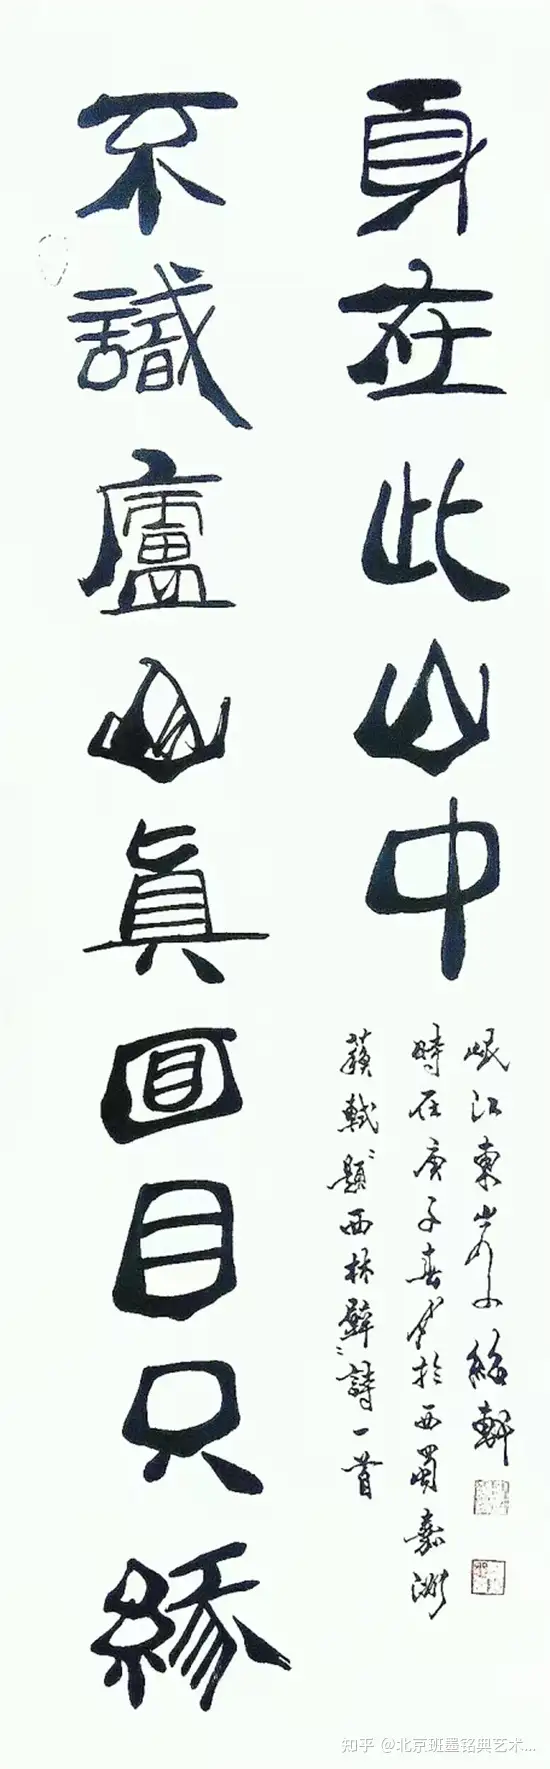 不識廬山眞面目只緣
身在此山中
蘇軾"題西林壁"詩一首
時在庚子春於西蜀嘉洲
岷江東軒
知乎 @北京班墨铭典艺术...